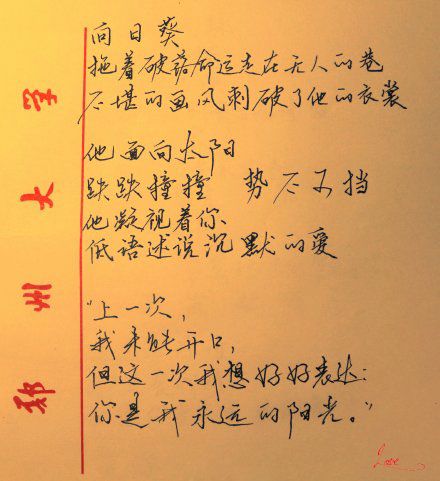 向日葵
拖着破落命运走在无人的巷
不堪的画风刺破了他的衣裳
他面向太阳
跌跌撞撞 势不可挡
他凝视着你
低语述说沉默的爱
“上一次，
我未能开口，
但这一次我想好好表达：
你是我永远的阳光。”
郑州大学
Love